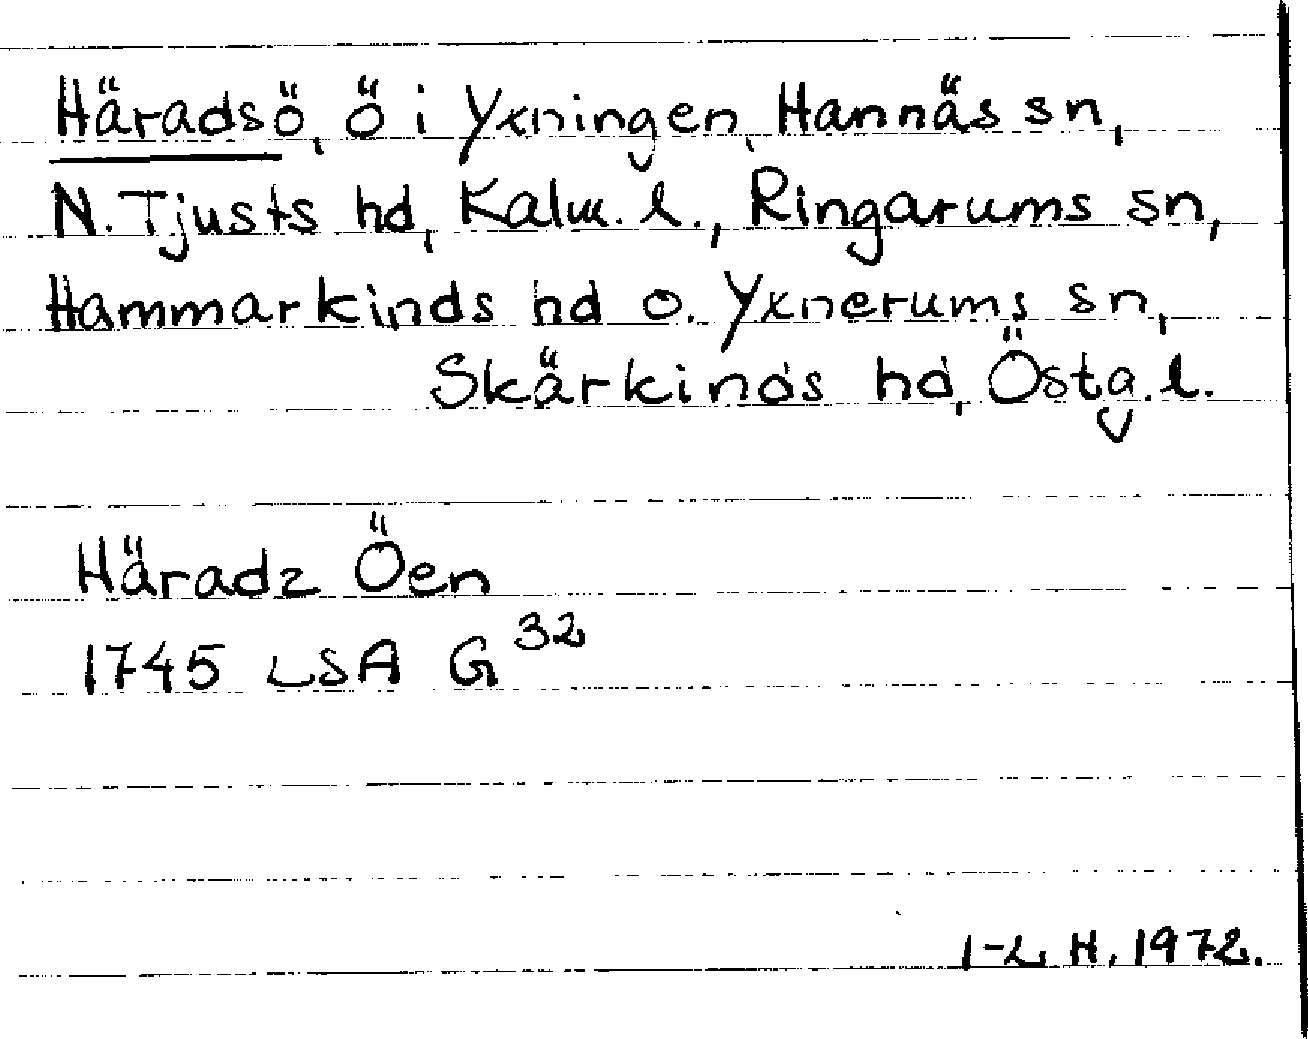 Häradsö, ö i Yxningen, Hannäs sn,
N. Tjusts hd, Kalm. l., Ringarums sn,
Hammarkinds hd o. Yxnerums sn,
Skärkinds hd, Östg. l.
Häradz Öen
1745 LSA G 32
I-L H, 1972.